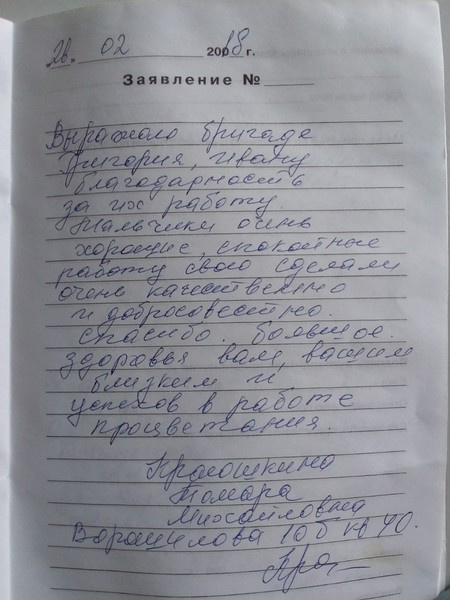 26. 02 2008 18 г.
Заявление №
Выражаю бригаде
Григория, Ивану
благодарность
за их работу.
Мальчики очень
хорошие, спокойные
работу свою сделали
очень качественно
и добросовестно.
спасибо. большое.
здоровья вам, вашим
близким и
успехов в работе
процветания.
Тамара
Михайловна
Ворошилова 10 б кв 40.